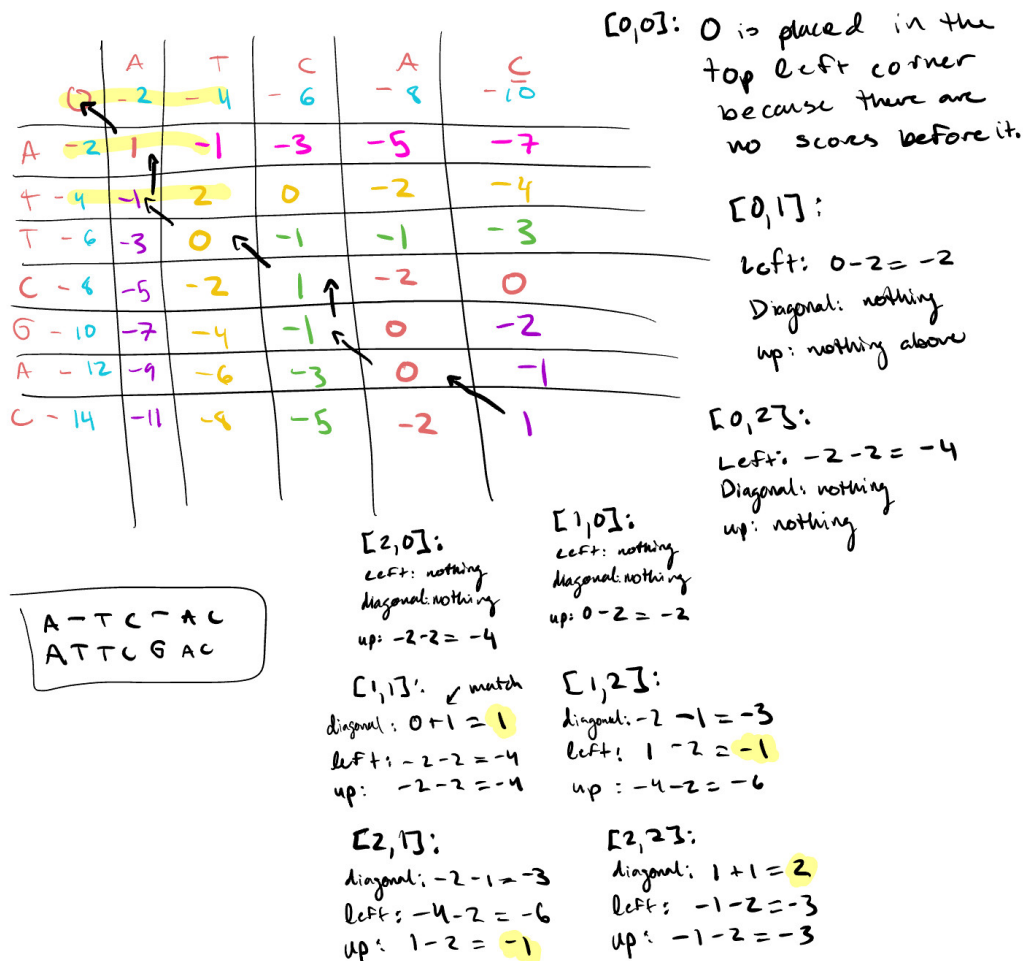 A T C A C
0 -2 -4 -6 -8 -10
A -2 1 -1 -3 -5 -7
T -4 -1 2 0 -2 -4
T -6 -3 0 -1 -1 -3
C -8 -5 -2 1 -2 0
G -10 -7 -4 -1 0 -2
A -12 -9 -6 -3 0 -1
C -14 -11 -8 -5 -2 1
[0,0]: 0 is placed in the
top left corner
because there are
no scores before it.
[0,1]:
Left: 0-2 = -2
Diagonal: nothing
up: nothing above
[0,2]:
Left: -2-2 = -4
Diagonal: nothing
up: nothing
[2,0]:
Left: nothing
diagonal: nothing
up: -2-2 = -4
[1,0]:
Left: nothing
diagonal: nothing
up: 0-2 = -2
A - T C - A C
A T T C G A C
[1,1]: match
diagonal: 0+1 = 1
left: -2-2 = -4
up: -2-2 = -4
[1,2]:
diagonal: -2 -1 = -3
left: 1 -2 = -1
up: -4-2 = -6
[2,1]:
diagonal: -2-1 = -3
left: -4-2 = -6
up: 1-2 = -1
[2,2]:
diagonal: 1+1 = 2
left: -1-2 = -3
up: -1-2 = -3